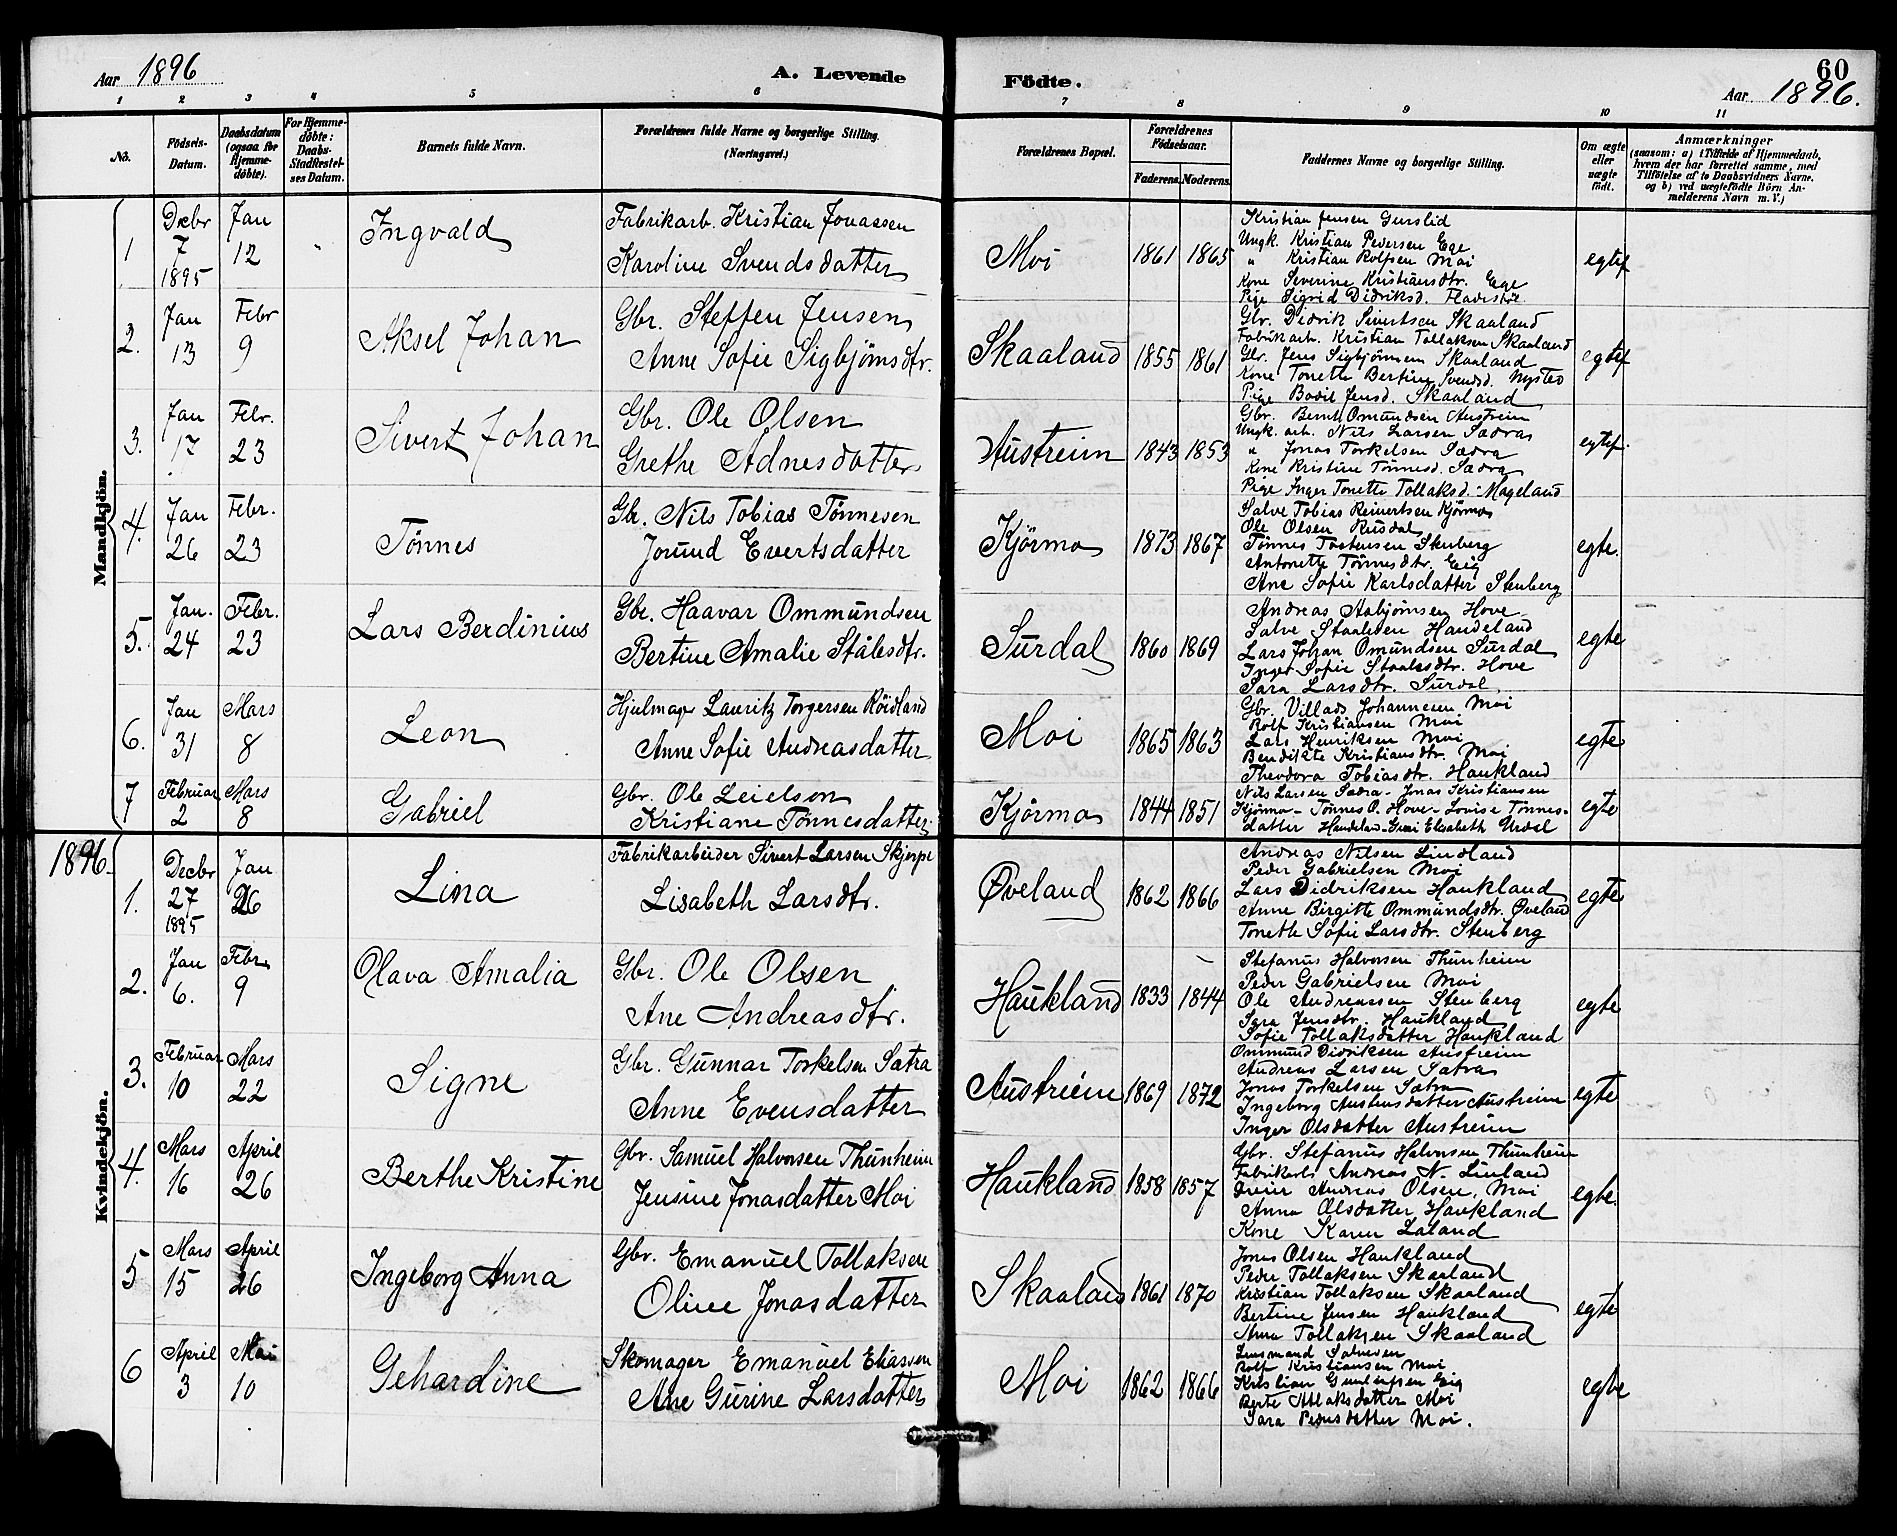 Aar 1896
A. Levende
Födte.
60
Aar 1896.
1 2 3 4 5 6 7 8 9 10 11
No.
Födsels-Datum.
Daabsdatum (ogsaa for Hjemme-döbte).
For Hjemme-döbte: Daabs-Stadfæstel-ses Datum.
Barnets fulde Navn.
Forældrenes fulde Navne og borgerlige Stilling. (Næringsvei.)
Forældrenes Bopæl.
Forældrenes Födselsaar.
Faderens. Moderens.
Faddernes Navne og borgerlige Stilling.
Om ægte eller uægte födt.
Anmærkninger
(saasom: a) i Tilfælde af Hjemmedaab, hvem der har forrettet samme, med Tilföielse af to Daabsvidners Navne, og b) ved uægtefödte Börn An-melderens Navn m. V.)
Mandkjön.
1 Decbr 7 1895 Jan 12 Ingvald
Fabrikarb. Kristian Jonassen
Karoline Svendsdatter
Moi 1861 1865
Kristian Jensen Gurslid
Ungk. Kristian Pedersen Ege
" Kristian Rolfsen Moi
Kone Severine Kristiansdtr. Ege
Pige Sigrid Didriksd.
egtef
2. Jan 13 Febr 9 Aksel Johan
Gbr. Steffen Jensen
Anne Sofie Sigbjörnsdtr.
Skaaland 1855 1861
Gbr. Didrik Sivertsen Skaaland
Fabrikarb. Kristian Tollaksen Skaaland
Gbr. Jens Sigbjörnsen Skaaland
Kone Tonette Bertine Svendsd. Nysted
Pige Bodil Jensd. Skaaland
egtef
3. Jan 17 Febr. 23 Sivert Johan
Gbr. Ole Olsen
Grethe Adnesdatter
Austreim 1843 1853
Gbr. Bernt Omundsen Austreim
Ungk. arb. Nils Larsen Sædra
" Jonas Torkelsen Sædra
Kone Kristine Tönnesd. Sædra
Pige Inger Tonette Tollaksd. Mageland
egtef.
4. Jan 26 Febr. 23 Tönnes
Gbr. Nils Tobias Tönnesen
Jorund Evertsdatter
Kjörmo 1873 1867
Salve Tobias Reinertsen Kjörmo
Ole Olsen Rusdal
Tönnes Tostensen Stenberg
Antonette Tönnesdtr. Eig
Ane Sofie Karlsdatter Stenberg
egte.
5. Jan. 24 Febr. 23 Lars Berdinius
Gbr. Haavar Ommundsen
Bertine Amalie Stålesdtr.
Surdal 1860 1869
Andreas Asbjörnsen Hove
Salve Staalesen Handeland
Lars Johan Omundsen Surdal
Inger Sofie Staalesdtr. Hove
Sara Larsdtr. Surdal
egte
6. Jan 31 Mars 8 Leon
Hjulmager Lauritz Torgersen Röidland
Anne Sofie Andreasdatter
Moi 1865 1863
Gbr. Villads Johannesen Moi
Rolf Kristiansen Moi
Lars Henriksen Moi
Bendikte Kristiansdtr. Moi
Theodora Tobiasdtr. Haukland
egte
7 Februar 2 Mars 8 Gabriel
Gbr. Ole Leielson
Kristiane Tönnesdatter.
Kjörmo 1844 1851
Nils Larsen Sædra - Jonas Kristiansen
Kjörmo - Tönnes O. Hove - Lovise Tönnes-
datter Handeland - Elisabeth Urdal
egte
1896.
Kvindekjön.
1. Decbr 27 1895 Jan 26 Lina
Fabrikarbeider Sivert Larsen Skjerpe
Lisabeth Larsdtr.
Øveland 1862 1866
Andreas Nilsen Lindland
Peder Gabrielsen Moi
Lars Didriksen Haukland
Anne Birgitte Ommundsdtr. Øveland
Tonette Sofie Larsdtr. Stenberg
egte
2. Jan 6. Febr. 9 Olava Amalia
Gbr. Ole Olsen
Ane Andreasdtr.
Haukland 1833 1844
Stefanus Halvorsen Thunheim
Peder Gabrielsen Moi
Ole Andreassen Stenberg
Sara Jensdtr. Haukland
Sofie Tollaksdatter Haukland
egte
3. Februar 10 Mars 22 Signe
Gbr. Gunnar Torkelsen Sætra
Anne Evensdatter
Austreim 1869 1872
Ommund Didriksen Austreim
Andreas Larsen Sætra
Jonas Torkelsen Sætra
Ingeborg Austensdatter Austreim
Inger Olsdatter Austreim
egte
4. Mars 16 April 26 Berthe Kristine
Gbr. Samuel Halvorsen Thunheim
Jensine Jonasdatter Moi
Haukland 1858 1857
Gbr. Stefanus Halvorsen Thunheim
Fabrikarb. Andreas N. Linland
Andreas Olsen, Moi
Anna Olsdatter Haukland
Kone Karen Laland
egte.
5 Mars 15 April 26 Ingeborg Anna
Gbr. Emanuel Tollaksen
Oline Jonasdatter
Skaaland 1861 1870
Jonas Olsen Haukland
Peder Tollaksen Skaaland
Kristian Tollaksen Skaaland
Bertine Jensen Haukland
Anna Tollaksen Skaaland
egte
6 April 3 Mai 10 Gehardine
Skomager Emanuel Eliassen
Ane Gurine Larsdatter
Moi 1862 1866
Lensmand Salvesen
Rolf Kristiansen Moi
Kristian Eig
Berte Atlaksdatter Moi
Sara Pedersdatter Moi.
egte